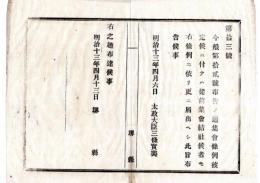 第三號
今般第拾貳號布告ノ通集會條例被
定候ニ付テハ從前集會結社候者モ
右條例ニ依リ更ニ届出ヘシ此旨布
告候事
明治十三年四月六日 太政大臣三條實美
右之通布達候事
明治十三年四月十二日 堺縣
堺縣